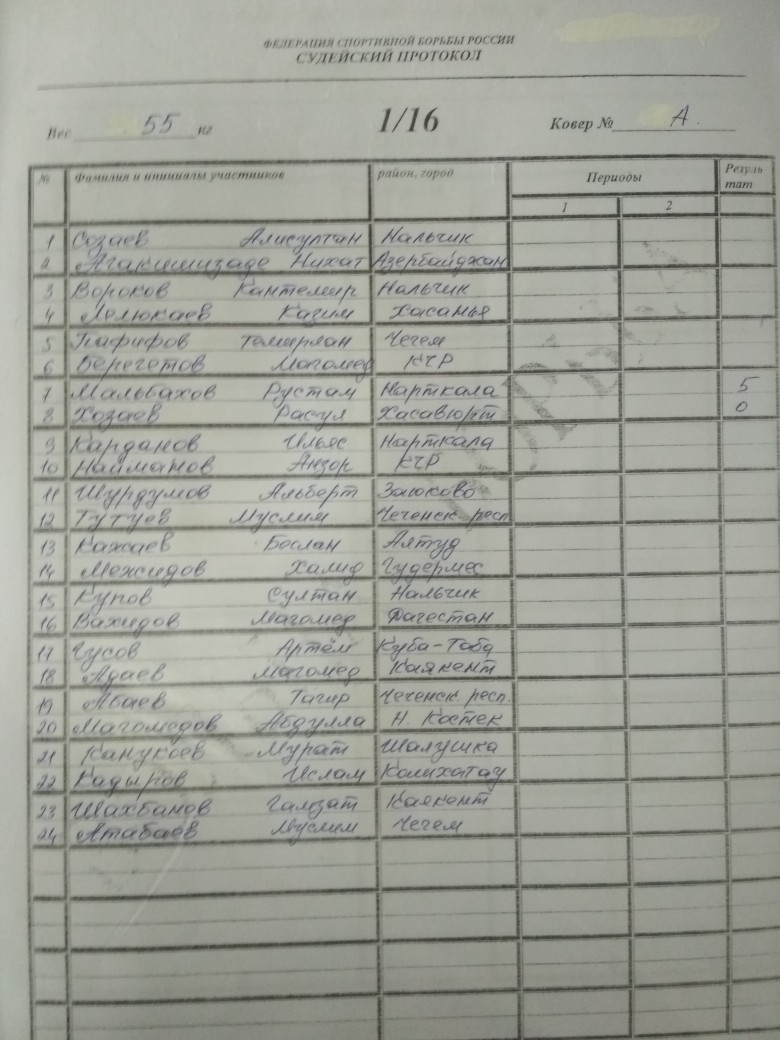 ФЕДЕРАЦИЯ СПОРТИВНОЙ БОРЬБЫ РОССИИ
СУДЕЙСКИЙ ПРОТОКОЛ
Вес 55 кг 1/16 Ковер № А.
№ Фамилия и инициалы участников район, город Периоды Резуль тат
1 2
1 Созаев Алисултан Нальчик
2 Агакишизаде Нихат Азербайджан
3 Вороков Кантемир Нальчик
4 Лелюкаев Казим Хасанья
5 Кафифов Темирлан Чегем
6 Берегетов Магомед КЧР
7 Мальбахов Рустам Нарткала 5
8 Хозаев Расул Хасавюрт 0
9 Карданов Ильяс Нарткала
10 Найманов Анзор КЧР
11 Шурдумов Альберт Заюково
12 Тутуев Муслим Чеченск. респ
13 Кажаев Беслан Алтуд
14 Межидов Халид Гудермес
15 Купов Султан Нальчик
16 Вахидов Магомед Дагестан
17 Гусов Артём Куба-Таба
18 Адаев Магомед Каякент
19 Абаев Тагир Чеченск. респ.
20 Магомедов Абдулла Н. Костек
21 Канукоев Мурат Шалушка
22 Кадыров Ислам
23 Шахбанов Каякент
24 Атабаев Муслим Чегем